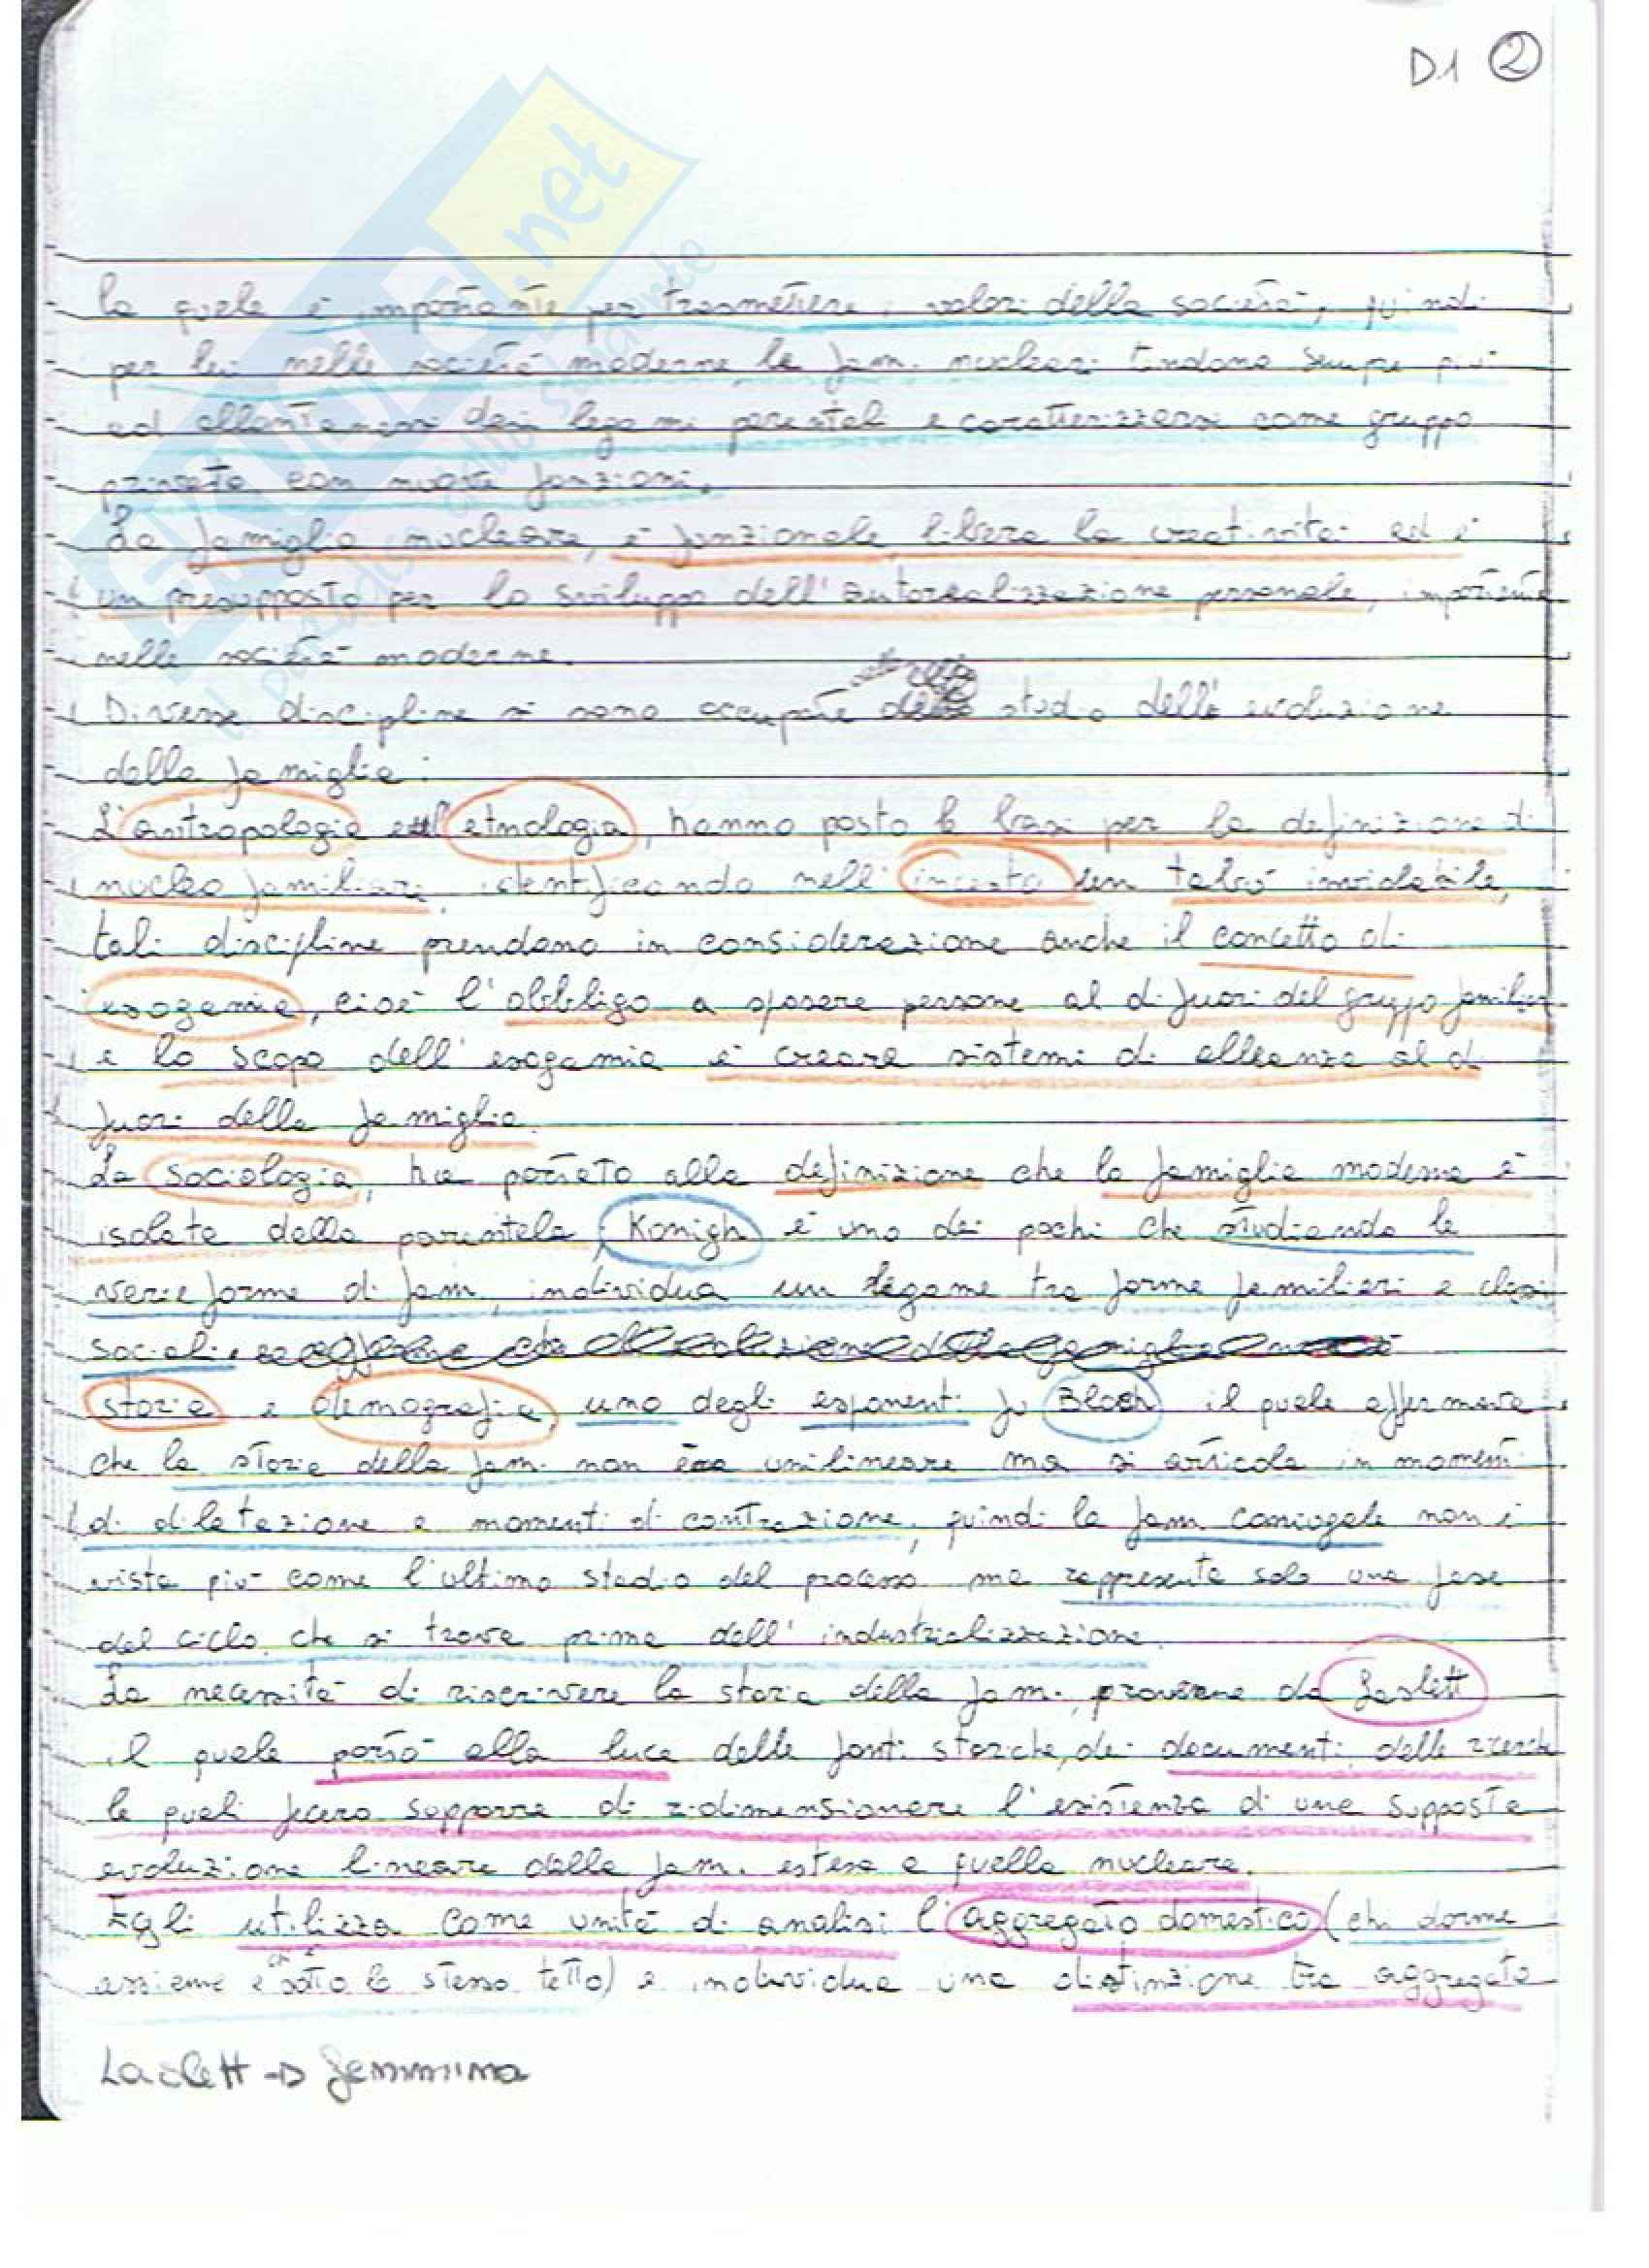 D1 ②
la quale è importante per trasmettere i valori della società, quindi
per lui nelle società moderne le fam. nucleari tendono sempre più
ad allontanarsi dai legami parentali e caratterizzarsi come gruppo
privato con nuove funzioni.
La famiglia nucleare, è funzionale, libera la creatività ed è
un presupposto per lo sviluppo dell'autorealizzazione personale, importante
nelle società moderne.
Diverse discipline si sono occupate dello studio dell'evoluzione
della famiglia:
L'antropologia e l'etnologia, hanno posto le basi per la definizione di
nucleo familiare, identificando nell'incesto un tabù inviolabile,
tali discipline prendono in considerazione anche il concetto di
esogamia, cioè l'obbligo a sposare persone al di fuori del gruppo familiare
e lo scopo dell'esogamia è creare sistemi di alleanza al di
fuori della famiglia.
La sociologia, ha portato alla definizione che la famiglia moderna è
isolata dalla parentela, Konigh è uno dei pochi che studiando le
varie forme di fam. individua un legame tra forme familiari e classi
sociali.
storia e demografia, uno degli esponenti fu Bloch il quale affermava
che la storia della fam. non era unilineare ma si articola in momenti
di dilatazione e momenti di contrazione, quindi la fam. coniugale non è
vista più come l'ultimo stadio del processo ma rappresenta solo una fase
del ciclo che si trova prima dell'industrializzazione.
La necessità di riscrivere la storia della fam. proviene da Laslett
il quale portò alla luce delle fonti storiche, dei documenti delle ricerche
le quali fecero supporre di ridimensionare l'esistenza di una supposta
evoluzione lineare dalla fam. estesa a quella nucleare.
Egli utilizza come unità di analisi l'aggregato domestico (chi dorme
assieme e chi è sotto lo stesso tetto) e individua una distinzione tra aggregato
Laslett → femmina
EXUDA.net
il paradiso dello studente